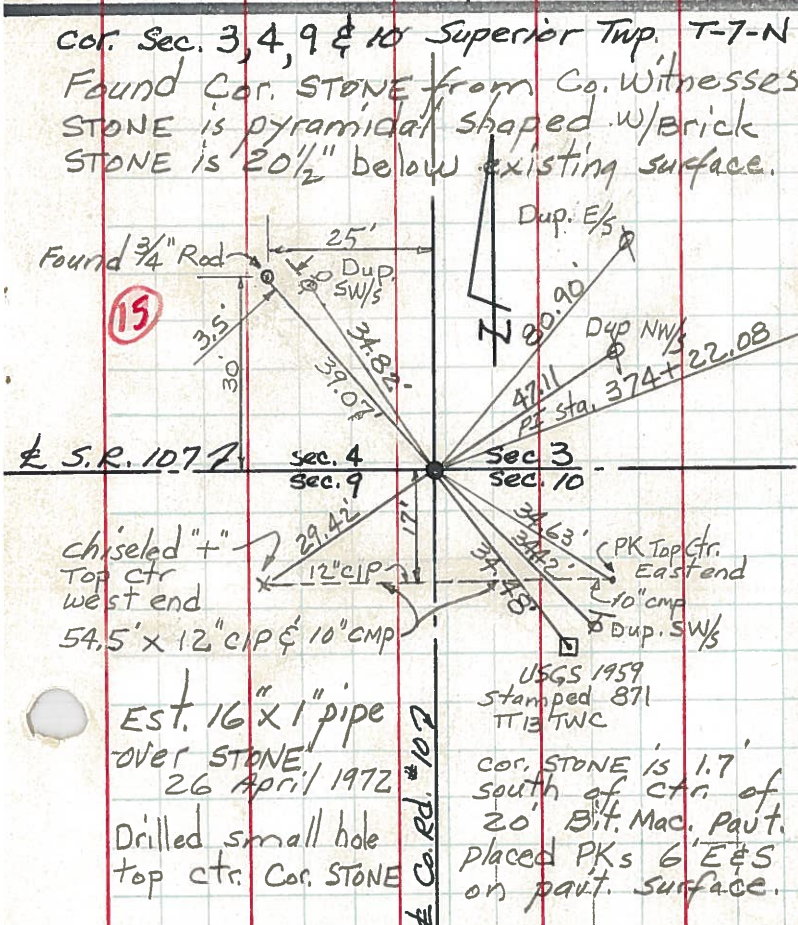 Cor. Sec. 3,4,9 & 10 Superior Twp. T-7-N
Found Cor. STONE from Co. Witnesses
STONE is pyramidal shaped w/Brick
STONE is 20½" below existing surface.
Dup. E/S
25'
Found ¾" Rod
Dup.
SW/S
15
3.5'
30'
34.82'
39.07'
80.90'
N
Dup NW/S
47.11
PI Sta. 374+22.08
℄ S.R. 107
sec. 4
Sec 3
sec. 9
sec. 10
29.42'
17'
34.63'
34.12'
34.48'
chiseled "+"
Top ctr
west end
12"CIP
PK Top Ctr.
East end
10"cmp
54.5' x 12"CIP & 10"CMP
Dup. SW/S
USGS 1959
Stamped 871
TT 13 TWC
Est. 16"x 1" pipe
over STONE
26 April 1972
Drilled small hole
top ctr. Cor. STONE
℄ Co. Rd. #107
cor. STONE is 1.7'
south of ctr. of
20' Bit. Mac. Pavt.
placed PKs 6' E&S
on pavt. surface.